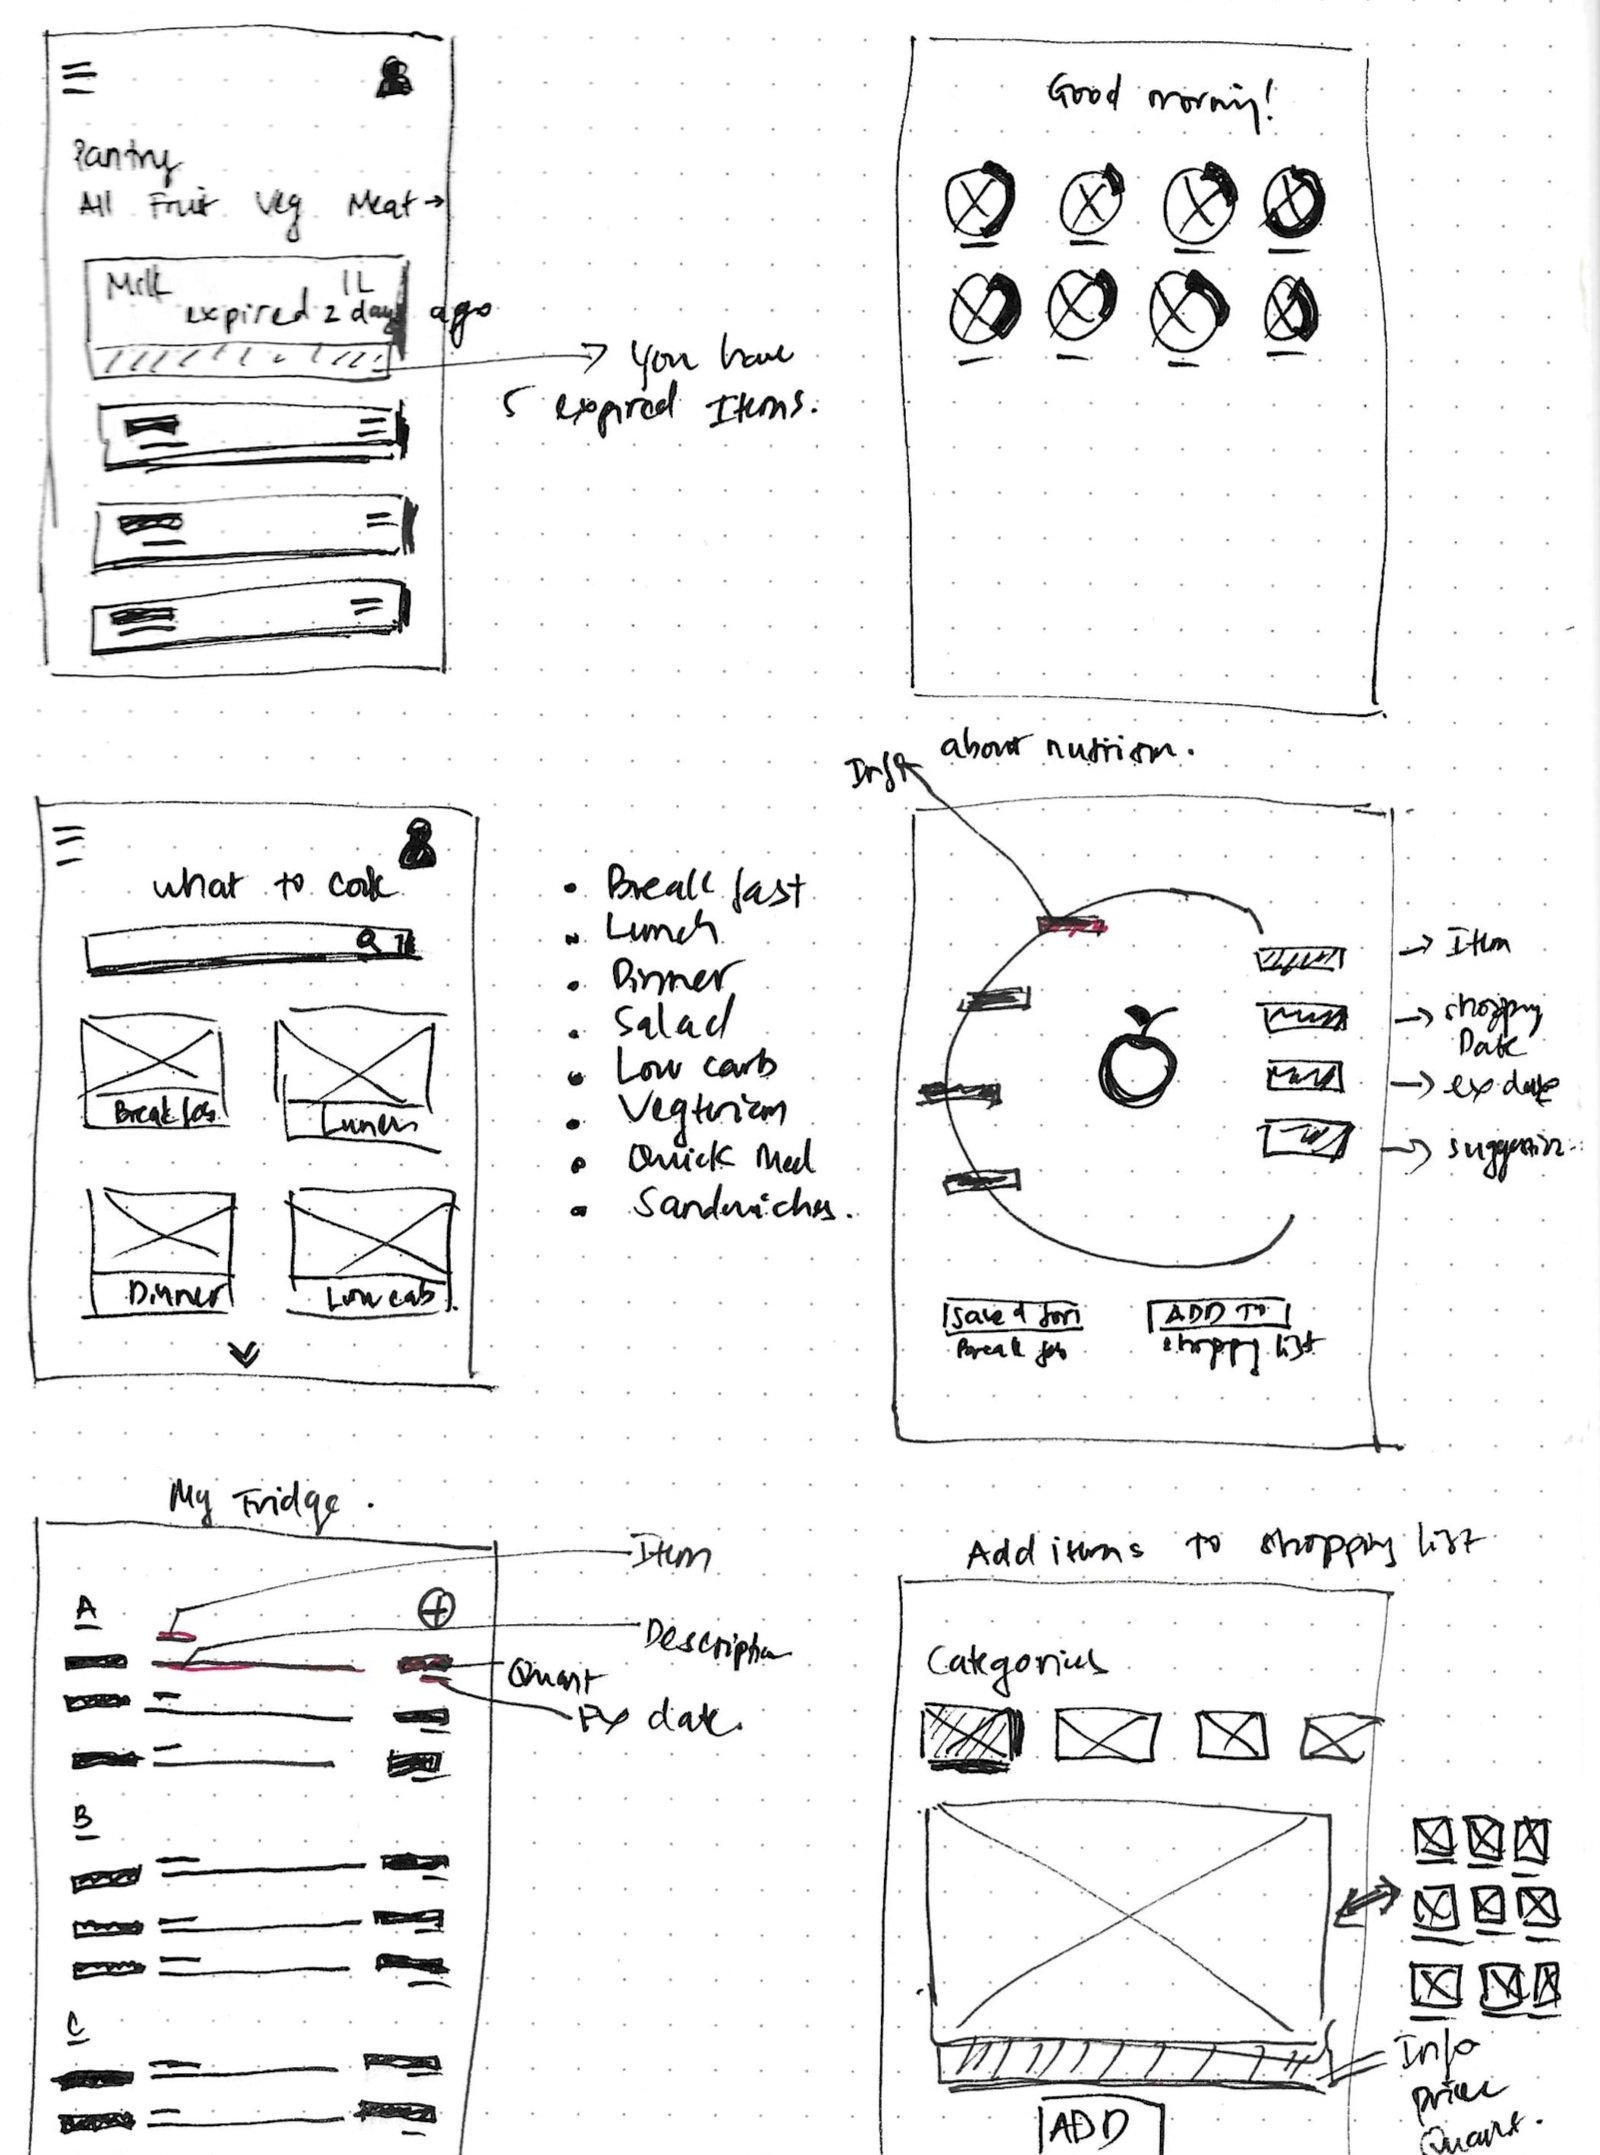 Pantry
All Fruit Veg Meat →
Milk 1L
expired 2 days ago
→ You have
5 expired Items.
Good morning!
What to cook
Breakfas
Lunch
Dinner
Low cab
• Breakfast
• Lunch
• Dinner
• Salad
• Low carb
• Quick Meal
• Sandwiches.
about nutrition.
→ Item
→ shopping
Date
→ ex date
→ suggestion
ADD TO
shoppy list
My Fridge.
A
B
C
Item
Description
Quant
Ex date.
Add items to shopping list
Categories
ADD
Info
Price
Quant.